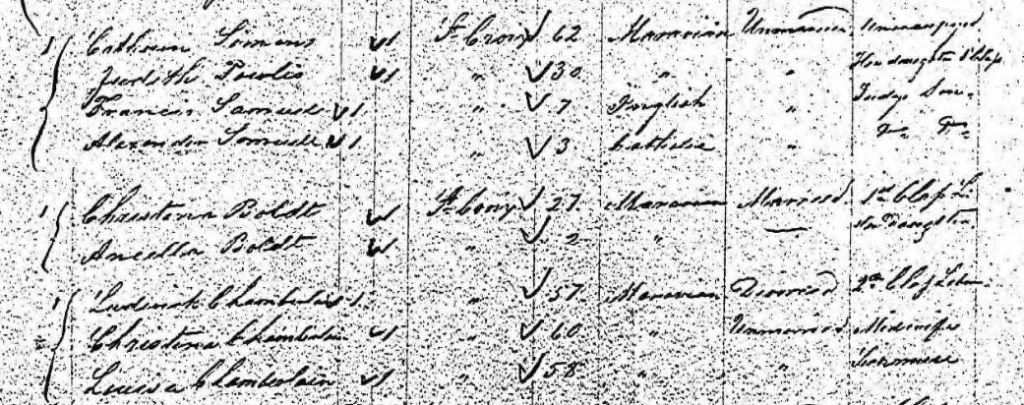 Cathrin Simens 1 St Croix 62 Moravian Unmarried
Judith 1 " 30 " " Her daughter 1 Class
Francis Samuel 1 " 7 English " Judys Son.
Alexander Samuel 1 " 3 Catholic " Do Do
1 Christina Boldt 1 St Croix 27 Moravian Married 1st Class L.
Ancilla Boldt 1 " 2 " — Daughter
1 Chamberlain 1 " 57 Moravian Divorced 2nd Class
Christina Chamberlain 1 " 60 " Unmarried Midwife
Louisa Chamberlain 1 " 58 " "